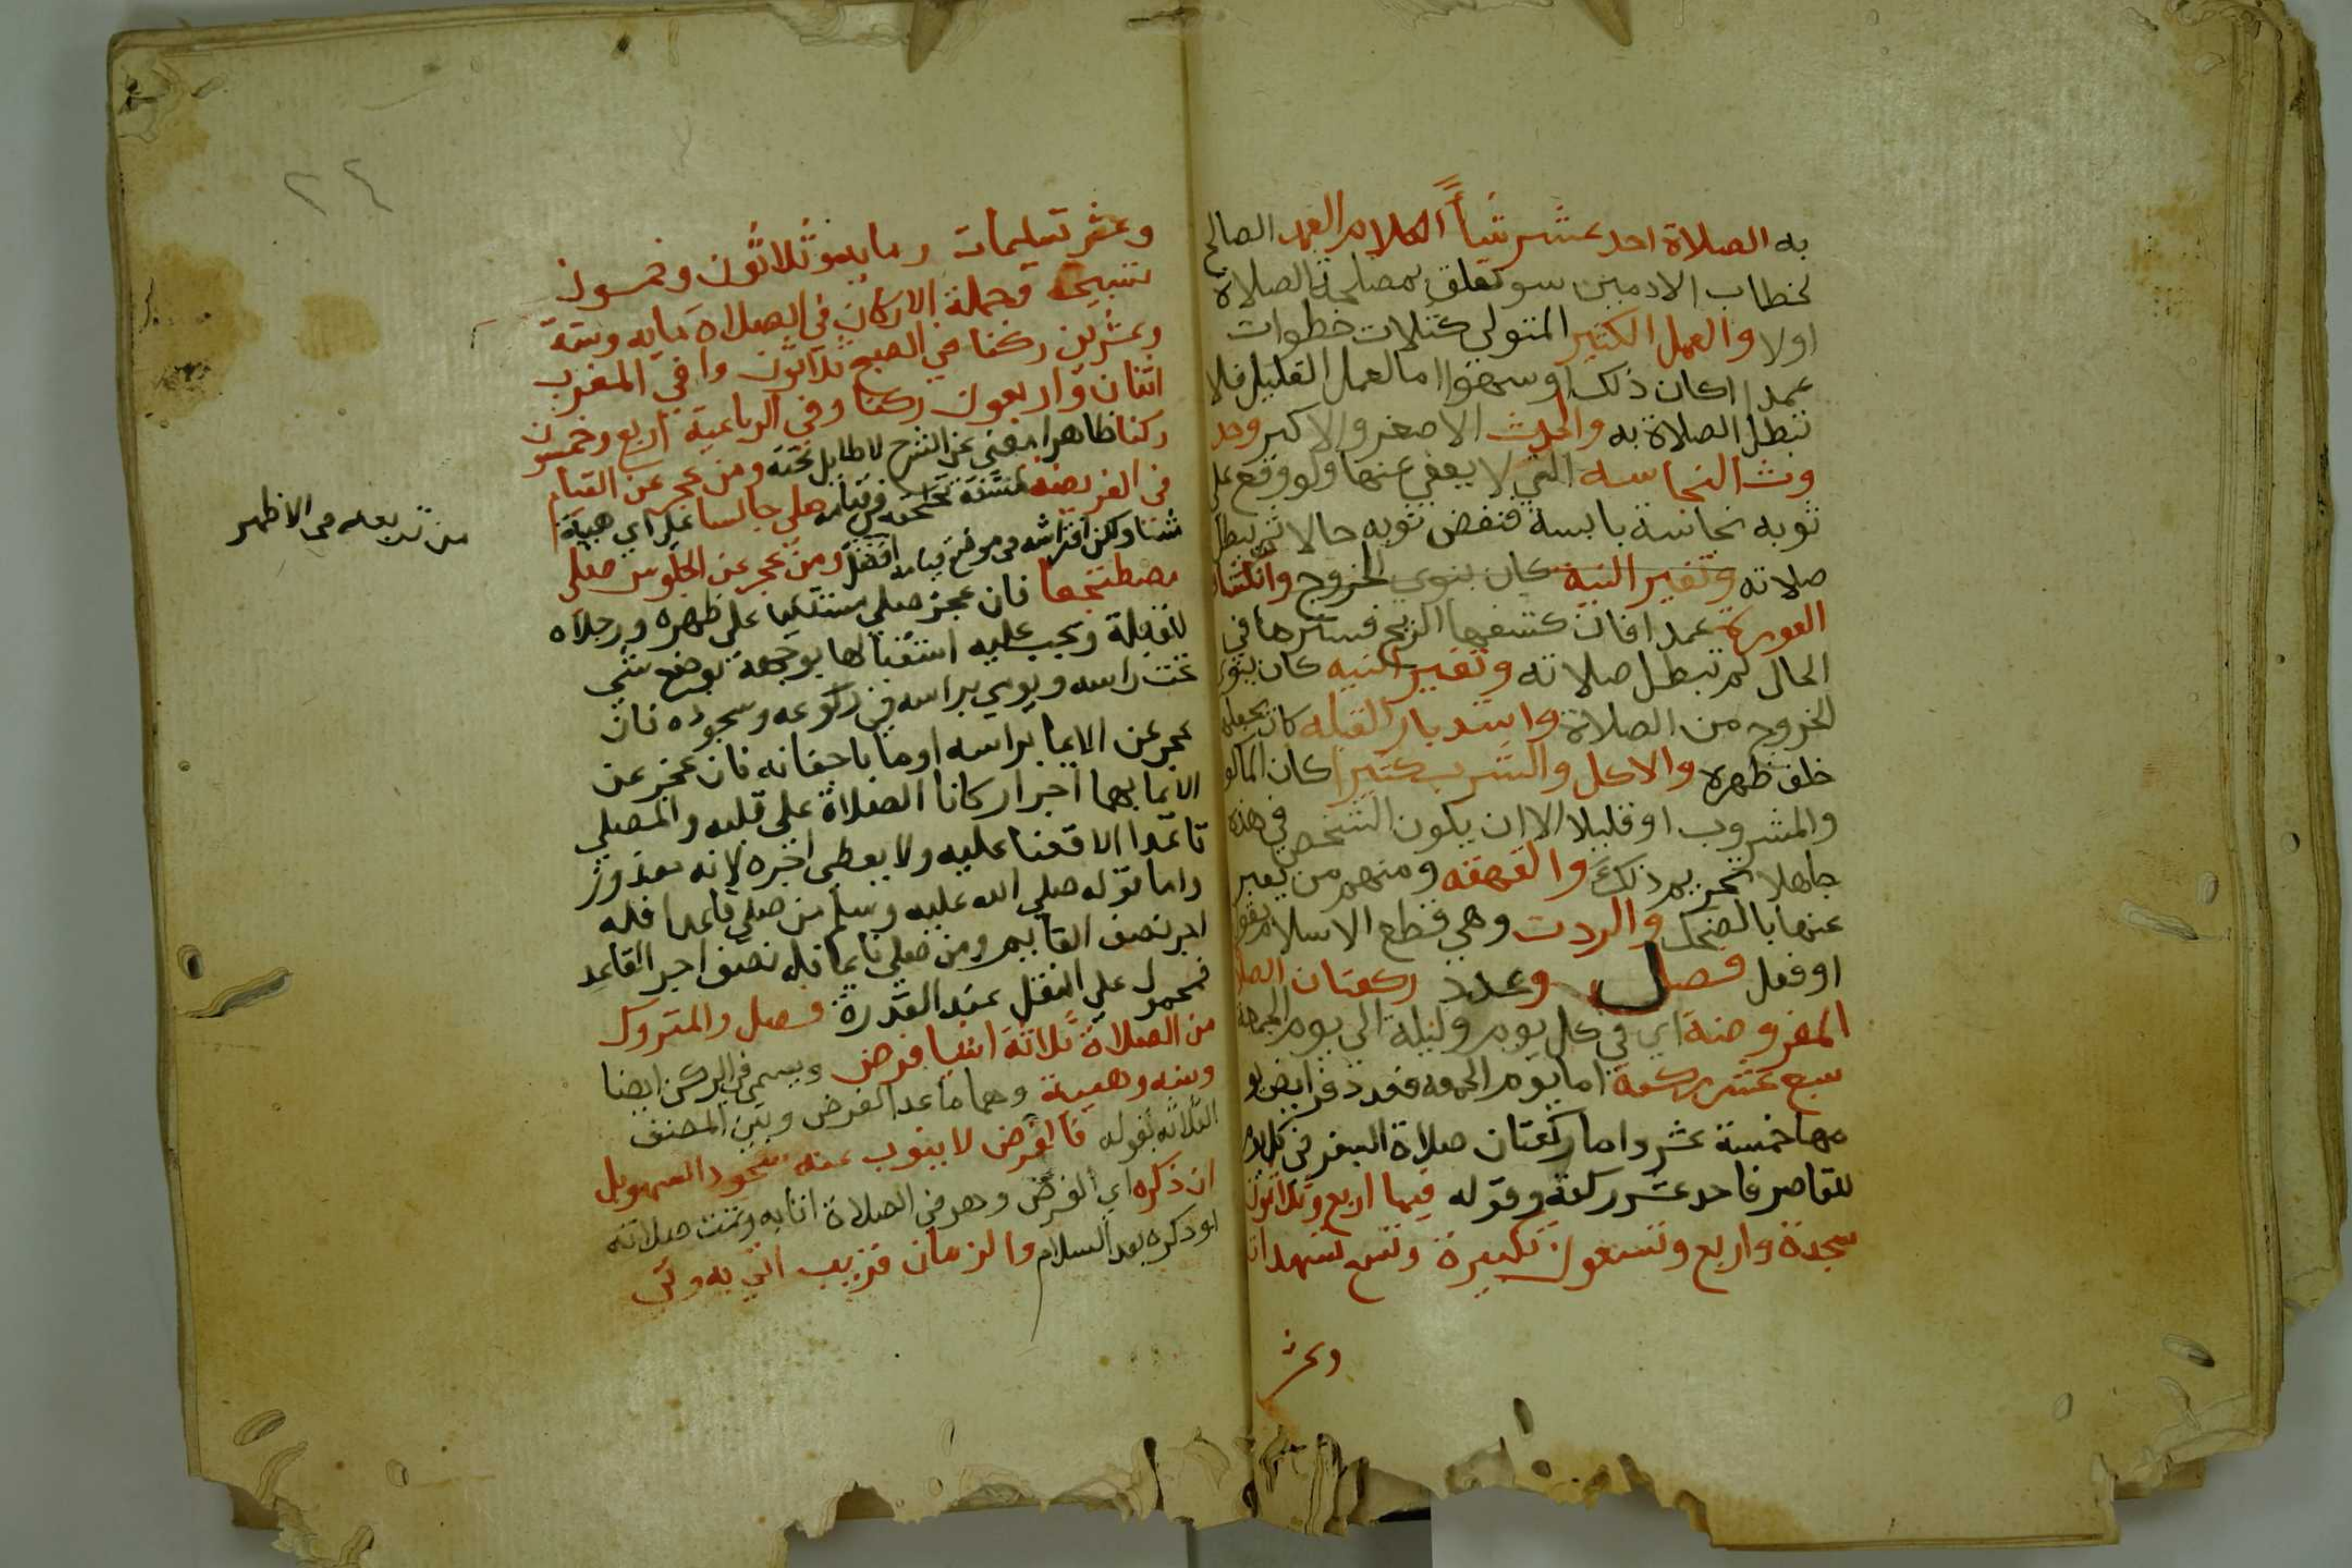 به الصلاة احد عشر شيأ الكلام العمد الصالح
لخطاب الادميين سو تعلق بمصلحة الصلاة
اولا والعمل الكثير المتوالي كثلاث خطوات
عمدا اكان ذلك اوسهوا اما العمل القليل فلا
تبطل الصلاة به والحدث الاصغر والاكبر وحد
وث النجاسه التي لا يعفي عنها ولو وقع على
ثوبه نجاسة يابسة فنفض ثوبه حالا لم تبطل
صلاته وتغير النية كان ينوي الخروج وانكشاف
العورة عمدا فان كشفها الريح فسترها في
الحال لم تبطل صلاته وتغير النيه كان ينوي
الخروج من الصلاة واستدبار القبله كان يجعلها
خلف ظهره والاكل والشرب كثيرا كان الماكو
والمشروب اوقليلا الا ان يكون الشخص في هذه
جاهلا تحريم ذلك والقهقه ومنهم من يعبر
عنها بالضحك والردت وهي قطع الاسلام بقول
او فعل فصل وعدد ركعتان الصلا
المفروضة اي في كل يوم وليلة الي يوم الجمعة
سبع عشر ركعة اما يوم الجمعه فعدد فرايض يو
مها خمسة عشر واما ركعتان صلاة السفر في كل يوم
للقاصر فاحد عشر ركعة وقوله فيها اربع وثلاثون
سجدة واربع وتسعون تكبيرة وتسع تشهدات
وعشر
٢٤
وعشر تسليمات ومايه وثلاثون وخمسون
تسبيحه وجملة الاركان في الصلاة مايه وستة
وعشرين ركنا في الصبح ثلاثون وا في المغرب
اثنان واربعون ركنا وفي الرباعية اربع وخمسون
ركنا ظاهرا مغني عن الشرح لا طايل تحته ومن عجز عن القيام
في الفريضه لمشقة تلحقه في قيامه صلي جالسا على اي هيية
شا ولكن افتراشه في موضع قيامه افضل ومن عجز عن الجلوس صلي
من تربعه في الاظهر
مضطجعا فان عجز صلي مستلقيا على ظهره ورجلاه
للقبلة ويجب عليه استقبالها بوجهه بوضع شي
تحت راسه ويومي براسه في ركوعه وسجوده فان
عجز عن الايما براسه اوما باجفانه فان عجز عن
الايما بهما اجرا اركانا الصلاة على قلبه والمصلي
قاعدا لا قضا عليه ولا يعطى اجره لانه معذور
واما قوله صلي الله عليه وسلم من صلي قاعدا فله
اجر نصف القايم ومن صلي نايما فله نصف اجر القاعد
فمحمول علي النفل عند القدرة فصل والمتروك
من الصلاة ثلاثة اشيا فرض ويسمي في الركن ايضا
وسنه وهيية وهما ما عدا الفرض وبين المصنف
الثلاثه بقوله فالفرض لا ينوب عنه سجود السهو بل
ان ذكره اي الفرض وهو في الصلاة اتا به وتمت صلاته
او ذكره بعد السلام والزمان قريب اتي به وبني